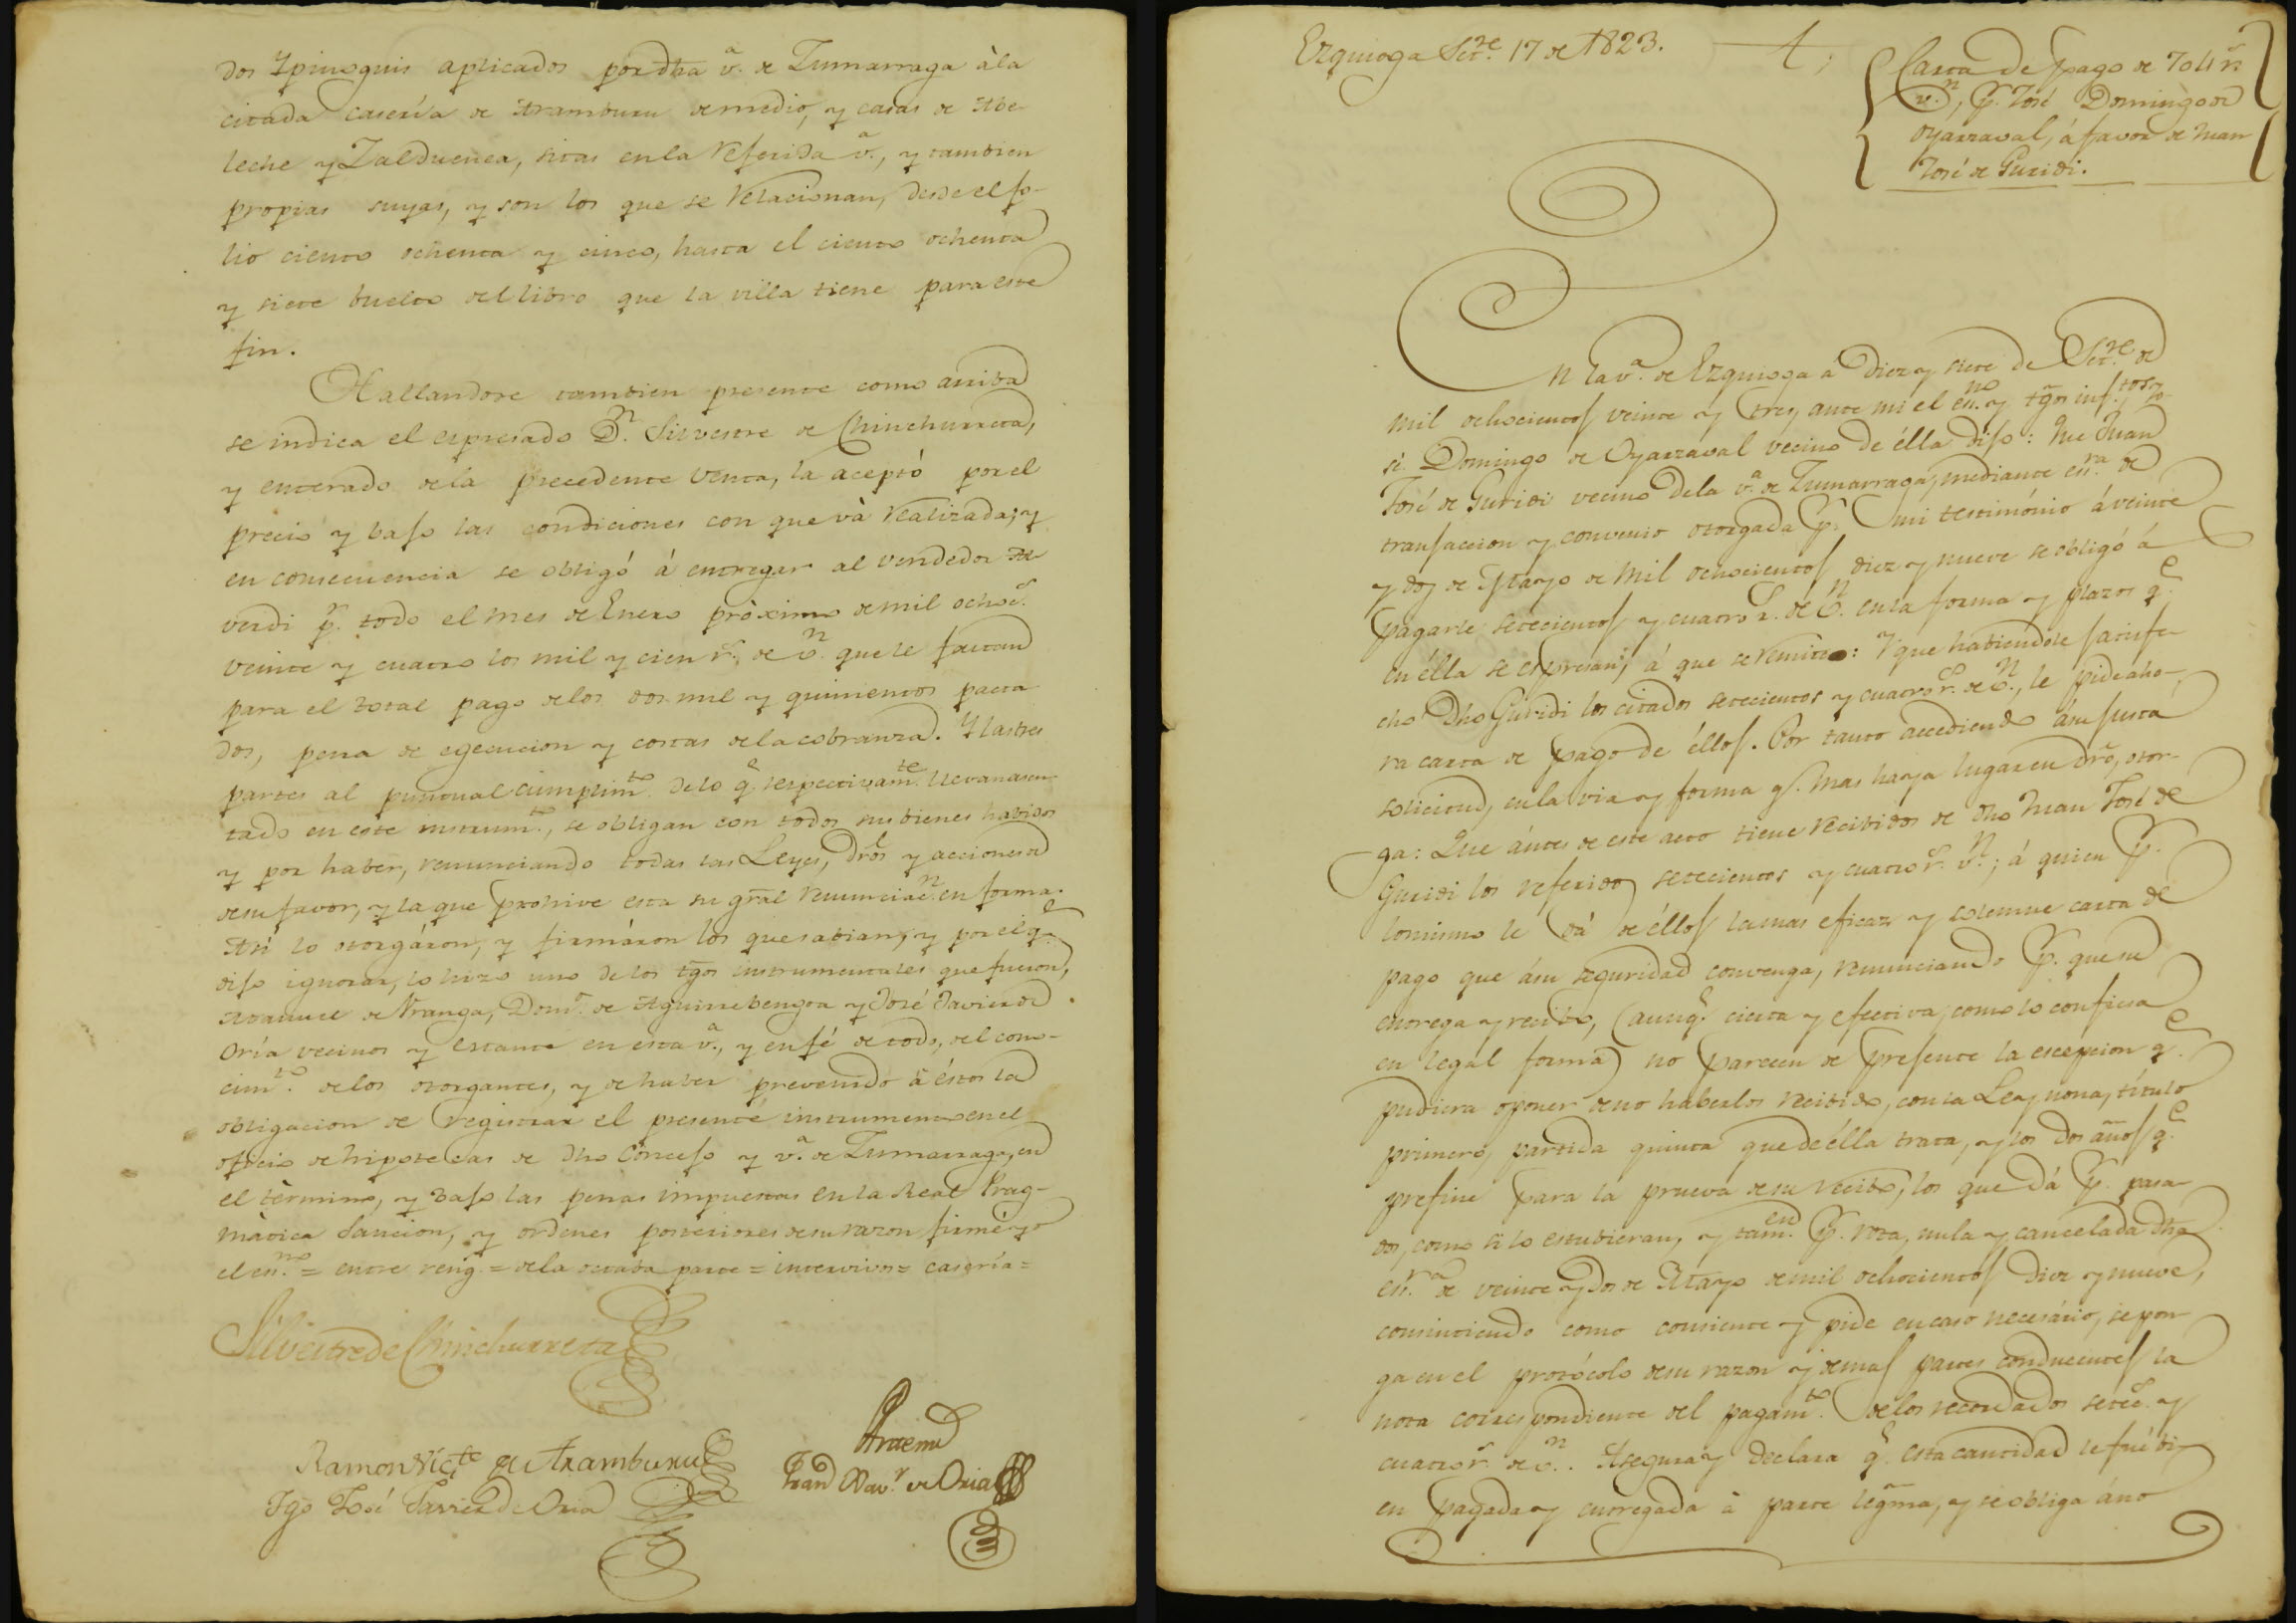 dos Ypinoguis aplicados por dha v.ª de Zumarraga à la
citada caseria de Aramburu de medio, y casas de Abe-
leche y Zalduenea, sitas en la referida v.ª, y tambien
propias suyas, y son los que se relacionan, desde el fo-
lio ciento ochenta y cinco, hasta el ciento ochenta
y siete buelto del libro que la villa tiene para este
fin.
Hallandose tambien presente como arriba
se indica el espresado D.n Silvestre de Chinchurreta,
y enterado de la precedente venta, la aceptó por el
precio y bajo las condiciones con que và realizada; y
en consecuencia se obligó á entregar al vendedor
verdi p.r todo el mes de Enero pròximo de mil ochoc.s
veinte y cuatro los mil y cien r.s de v.n que le faltan
para el total pago de los dos mil y quinientos pacta-
dos, pena de egecucion y costas de la cobranza. Y las tres
partes al puntual cumplim.to de lo q.e respectivam.te llevan asen-
tado en este instrum.to, se obligan con todos sus bienes habidos
y por haber, renunciando todas las Leyes, dros y acciones de
de su favor, y la que prohive esta su gral renunciac.n en forma.
Asi lo otorgáron, y firmáron los que sabian, y por el q.e
dijo ignorar, lo hizo uno de los tgos instrumentales que fueron,
Manuel de Uranga, Dom.o de Aguirrebengoa y José Javier de
Oría vecinos y estante en esta v.ª, y en fé de todo, del cono-
cim.to de los otorgantes, y de haber prevenido á éstos la
obligacion de registrar el presente instrumento en el
oficio de hipotecas de dho Concejo y v.ª de Zumarraga, en
el tèrmino, y bajo las penas impuestas en la Real Prag-
màtica Sancion, y ordenes posteriores de su razon firmé yo
el es.no = entre reng.s = de la octaba parte = intervivos = caseria =
Silvestre de Chinchurreta
Ramon Vic.te de Aramburu
Tgo José Javier de Oria
Antemi
Juan Nav.r de Oria
Ezquioga Set.re 17 de 1823.
Carta de pago de 704 r.s
v.n, p.r José Domingo de
Oyarzaval, á favor de Juan
José de Guridi.
N la v.ª de Ezquioga á diez y siete de Set.re de
mil ochocientos veinte y tres, ante mi el es.no y tgos inf.tos, Jo-
sé Domingo de Oyarzaval vecino de élla dijo: Que Juan
José de Guridi vecino de la v.ª de Zumarraga, mediante es.ra de
transaccion y convenio otorgada p.r mi testimónio á veinte
y dos de Mayo de mil ochocientos diez y nueve se obligó á
pagarle setecientos y cuatro r.s de v.n en la forma y plazos q.e
en élla se espresan, á que se remite: Y que habiendole satisfe-
cho dho Guridi los citados setecientos y cuatro r.s de v.n, le pide aho-
ra carta de pago de éllos. Por tanto accediendo á su justa
solicitud, en la via y forma q.e mas haya lugar en dro, otor-
ga: Que ántes de este acto tiene recibidos de dho Juan José de
Guridi los referidos setecientos y cuatro r.s v.n; á quien p.r
lo mismo le dá de éllos la mas eficaz y solemne carta de
pago que á su seguridad convenga, renunciando p.r que su
entrega y recibo, (aunq.e cierta y efectiva, como lo confiesa
en legal forma) no parecen de presente la escepcion q.e
pudiera oponer de no haberlos recibido, con la Ley nona, título
primero, partida quinta que de élla trata, y los dos años q.e
prefine para la prueva de su recibo, los que dá p.r pasa-
dos, como si lo estubieran, y tam.en p.r rota, nula y cancelada dha
es.ra de veinte y dos de Mayo de mil ochocientos diez y nueve,
consintiendo como consiente y pide en caso necesário, se pon-
ga en el protócolo de su razon y demas partes conducentes la
nota correspondiente del pagam.to de los recordados setec.s y
cuatro r.s de v.n. Asegura y declara q.e esta cantidad le fué bi-
en pagada y entregada à parte legma, y se obliga á no